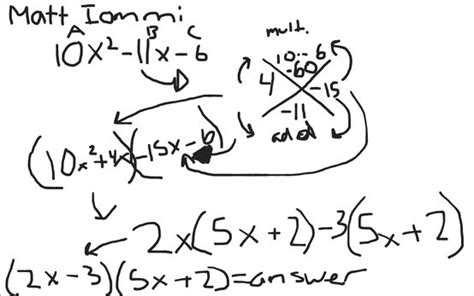 Matt Iommi
A B C
10x² -11x -6
mult.
10·-6
-60
4 -15
-11
added
(10x²+4x)(-15x-6)
2x(5x+2)-3(5x+2)
(2x-3)(5x+2)=answer